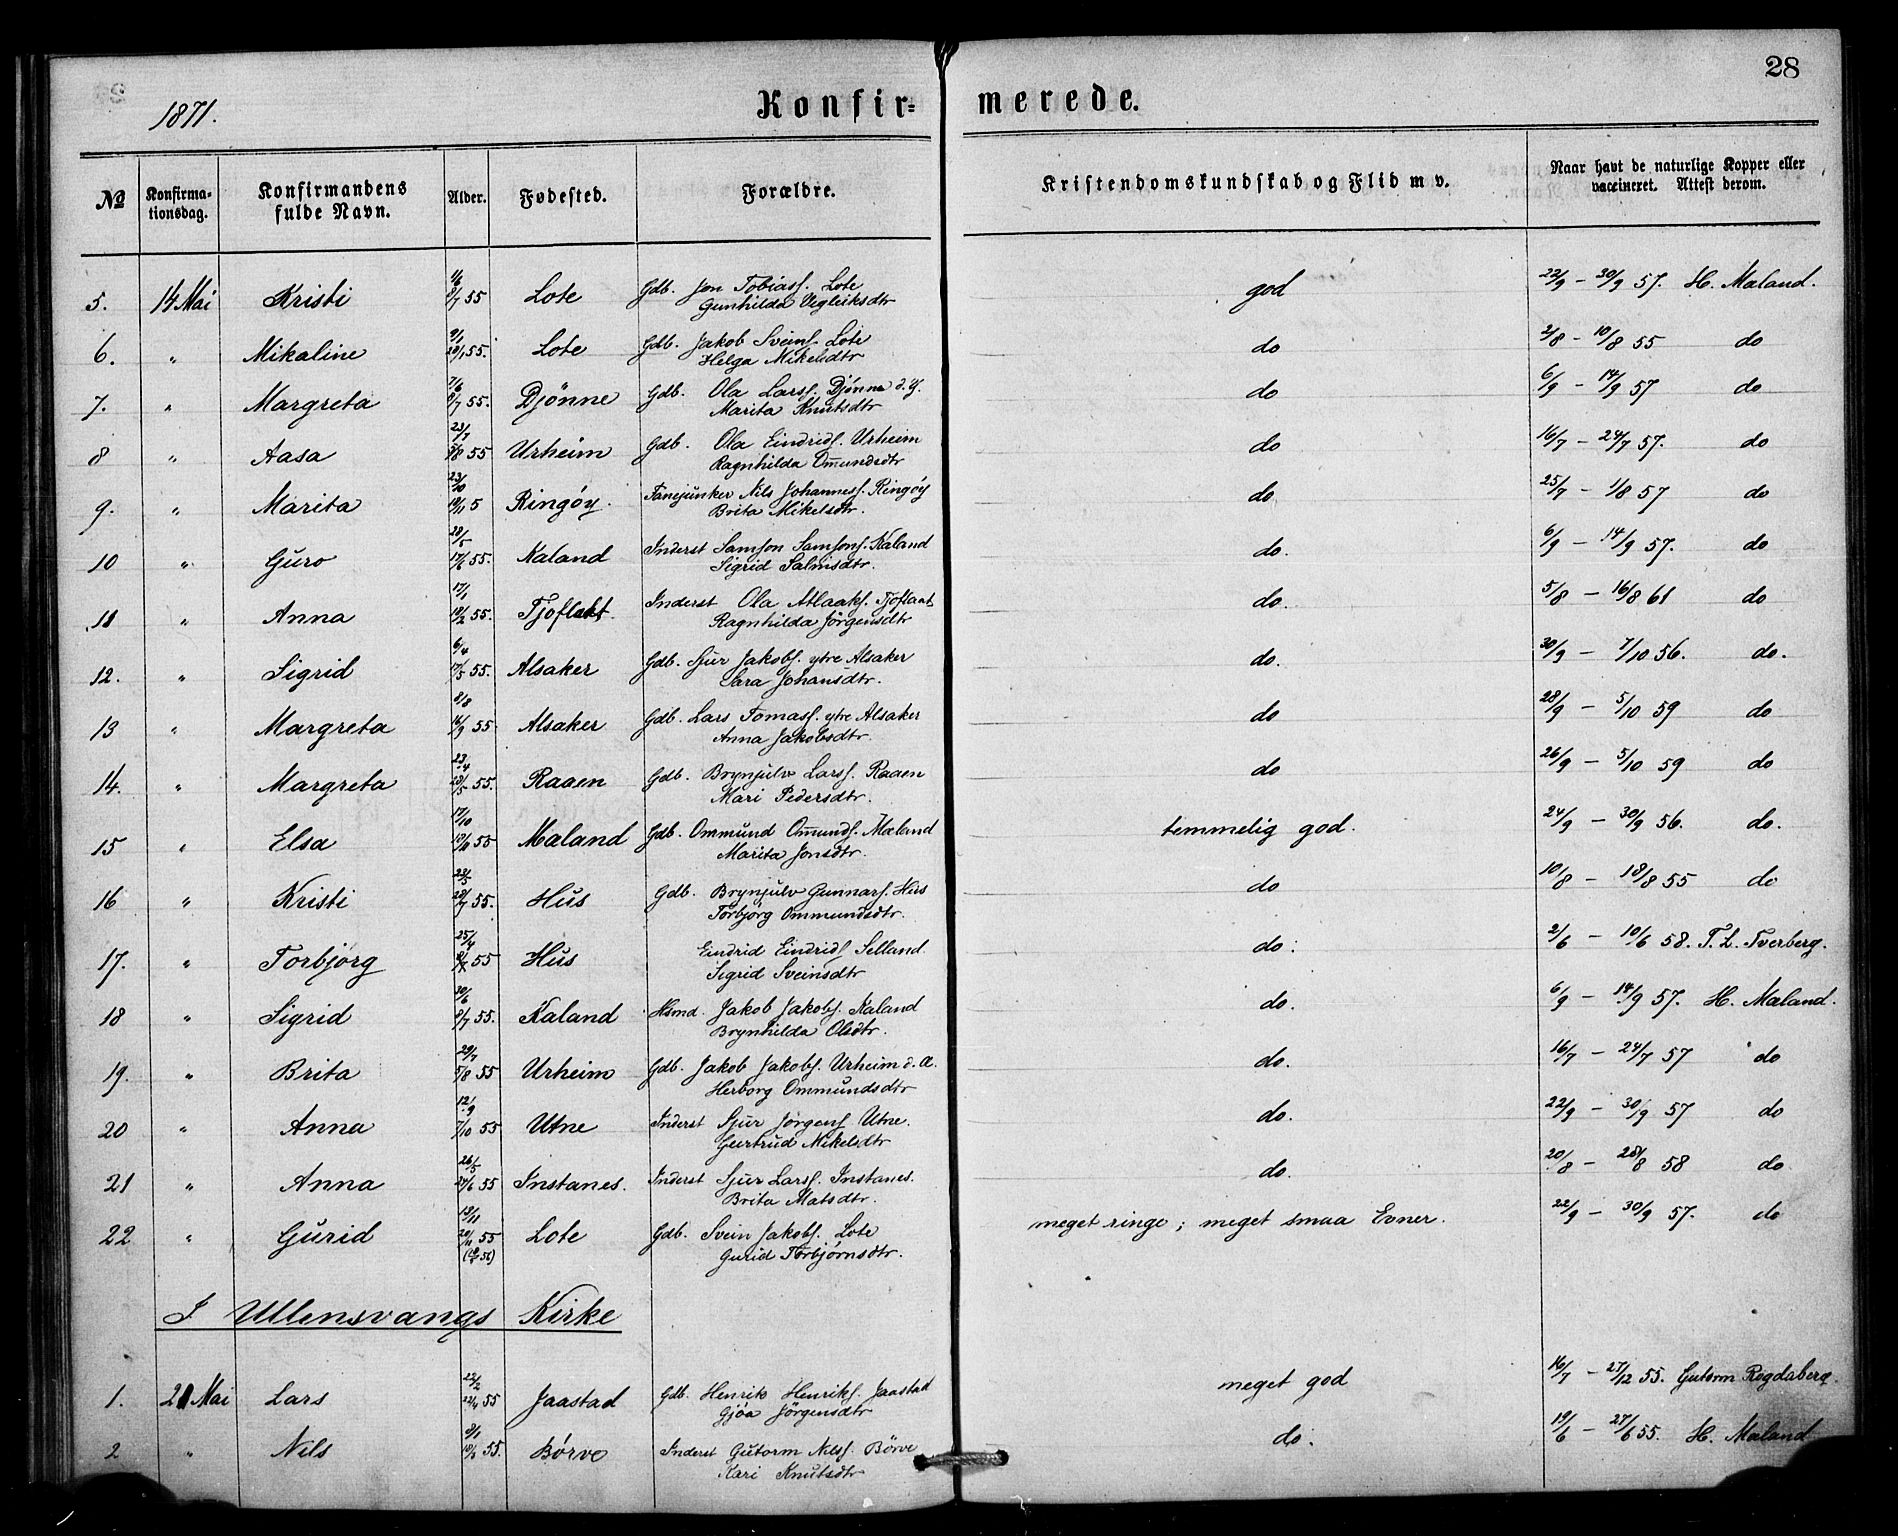 28
1871.
Konfir-merede.
№ Konfirma-tionsdag. Konfirmandens fulde Navn. Alder. Fødested. Forældre. Kristendomskundskab og Flid m v. Naar havt de naturlige Kopper eller vaccineret. Attest derom.
5. 14 Mai Kristi 1/6 8/7 55 Lote Gdb. Jon Tobiass. Lote god 22/9 - 30/9 57. H. Maland.
Gunhilda Vegleiksdtr
6. " Mikaline 9/1 28/1 55. Lote Gdb. Jakob Sveins. Lote do 2/8 - 10/8 55 do
Helga Mikelsdtr
7. " Margreta 7/6 8/7 55. Djönne Gdb. Ola Larss. Djönne d. y. do 6/9 - 14/9 57 do
Marita Knutsdtr
8 " Aasa 23/7 5/8 55 Urheim Gdb. Ola Eindrids. Urheim do 16/7 - 24/7 57. do
Ragnhilda Omundsdtr
9. " Marita 23/10 18/11 5 Ringöy. Fanejunker Nils Johanness. Ringöy do 25/7 - 1/8 57 do
Brita Mikelsdtr.
10 " Guro 28/5 17/6 55. Kaland Inderst Samson Samsons. Kaland do. 6/9 - 14/9 57. do
Sigrid Salmsdtr.
11 " Anna 17/1 18/2 55. Tjoflaat. Inderst Ola Atlaaks. Tjoflaat do. 5/8 - 16/8 61 do
Ragnhilda Jörgensdtr
12. " Sigrid 6/4 17/5 55. Alsaker Gdb. Sjur Jakobs. ytre Alsaker do. 30/9 - 7/10 56. do.
Sara Johansdtr.
13 " Margreta 8/8 16/9 55 Alsaker Gdb. Lars Tomass. ytre Alsaker do 28/9 - 5/10 59 do
Anna Jakobsdtr.
14. " Margreta 23/4 28/5 55. Raaen Gdb. Brynjulv Larss. Raaen do 26/9 - 5/10 59 do
Mari Pedersdtr.
15 " Elsa 17/10 55 Maland Gdb. Ommund Omunds. Maland temmelig god. 24/9 - 30/9 56. do.
Marita Jonsdtr.
16 " Kristi 55. Hus Gdb. Brynjulv Gunnars. Hus do 10/8 - 18/8 55 do
Torbjörg Ommundsdtr.
17. " Torbjörg 25/4 55 Hus Eindrid Eindrids. Selland. do. 2/6 - 10/6 58. T. L. Tverberg.
Sigrid Sveinsdtr
18 " Sigrid 30/6 8/7 55. Kaland Hsmd. Jakob Jakobs. Kaland do. 6/9 - 14/9 57. H. Maland.
Brynhilda Olsdtr.
19. " Brita 29/7 5/8 55 Urheim Gdb. Jakob Jakobs. Urheim d. æ. do. 16/7 - 24/7 57 do
Herborg Ommundsdtr
20 " Anna 12/9 7/10 55 Utne Inderst Sjur Jörgens. Utne. do. 22/9 - 30/9 57 do
Gertrud Mikelsdtr
21 " Anna 26/5 24/6 55 Instanes. Inderst Sjur Larss. Instanes. do. 20/8 - 28/8 58 do
Brita Matsdtr.
22 " Gurid 55 Lote Gdb. Svein Jakobs. Lote meget ringe; meget smaa Evner. 22/9 - 30/9 57. do
Gurid Torbjörnsdtr.
I Ullensvangs Kirke
1. 21 Mai Lars 22/2 55 Jaastad Gdb. Henrik Henriks. Jaastad meget god 16/7 - 27/12 55. Gutorm Rogdaberg.
Gjöa Jörgensdtr
2 " Nils 55. Börve Inderst Gutorm Nilss. Börve do. 19/6 - 27/6 55. H. Maland
Kari Knutsdtr